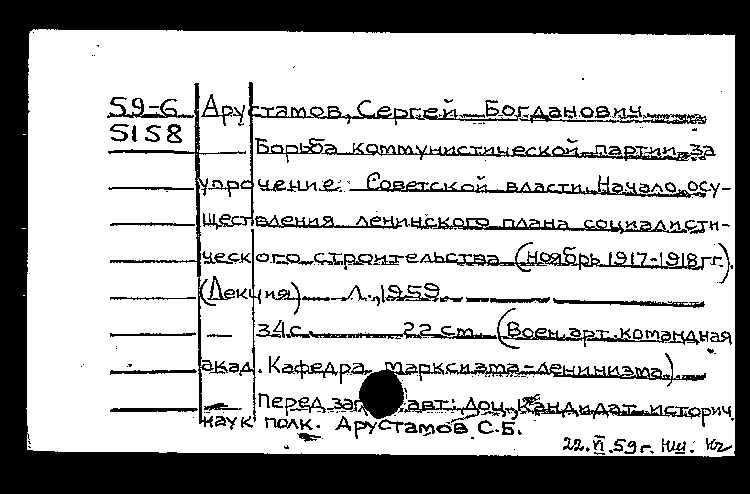 59-6 Арустамов, Сергей Богданович
5158
Борьба коммунистической партии за
упрочение Советской власти. Начало осу-
ществления ленинского плана социалисти-
ческого строительства (ноябрь 1917-1918 гг.).
(Лекция) Л., 1959.
— 34 с. 22 см. (Воен. арт. командная
акад. Кафедра марксизма-ленинизма)
— Перед заг. авт: доц., кандидат историч.
наук полк. Арустамов С.Б.
22.VI.59г.